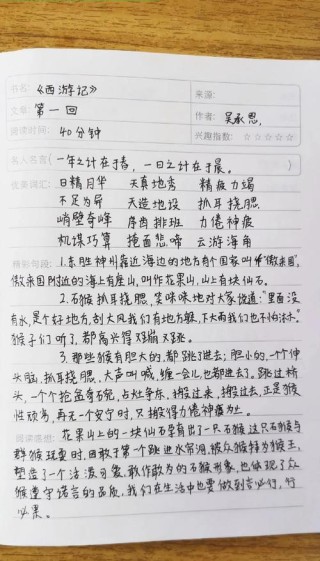 书名:《西游记》 来源:
文章:第一回 作者:吴承恩.
阅读时间:40分钟 兴趣指数:☆☆☆☆☆
名人名言(一年之计在于春,一日之计在于晨。)
优美词汇:日精月华 天真地秀 精疲力竭
不足为异 天造地设 抓耳挠腮
峭壁奇峰 序齿排班 力倦神疲
机谋巧算 掩面悲啼 云游海角
精彩句段:1.东胜神州靠近海边的地方有个国家叫作“傲来国”,
傲来国附近的海上有座山,叫作花果山,山上有块仙石。
2.石猴抓耳挠腮,笑咪咪地对大家说道:“里面没
有水,是个好地方,刮大风我们有地方躲,下大雨我们也不怕沐。”
猴子们听了,都高兴得又蹦又跳。
3.那些猴有胆大的,都跳了进去;胆小的,一个个伸
头脑,抓耳挠腮,大声叫喊,缠一会儿,也都进去了。跳过桥
头,一个个抢盆夺碗,占灶争床,搬过来,搬过去,正是猴
性顽劣,再无一个安宁时,只搬得力倦神疲为止。
阅读感想:花果山上的一块仙石孕育出了一只石猴,这只石猴与
群猴玩耍时,因敢于第一个跳进水帘洞,被众猴拜为猴王,
塑造了一个活泼可爱,敢作敢为的石猴形象,也体现了众
猴遵守诺言的品质,我们在生活中也要做到言必行,行
必果。